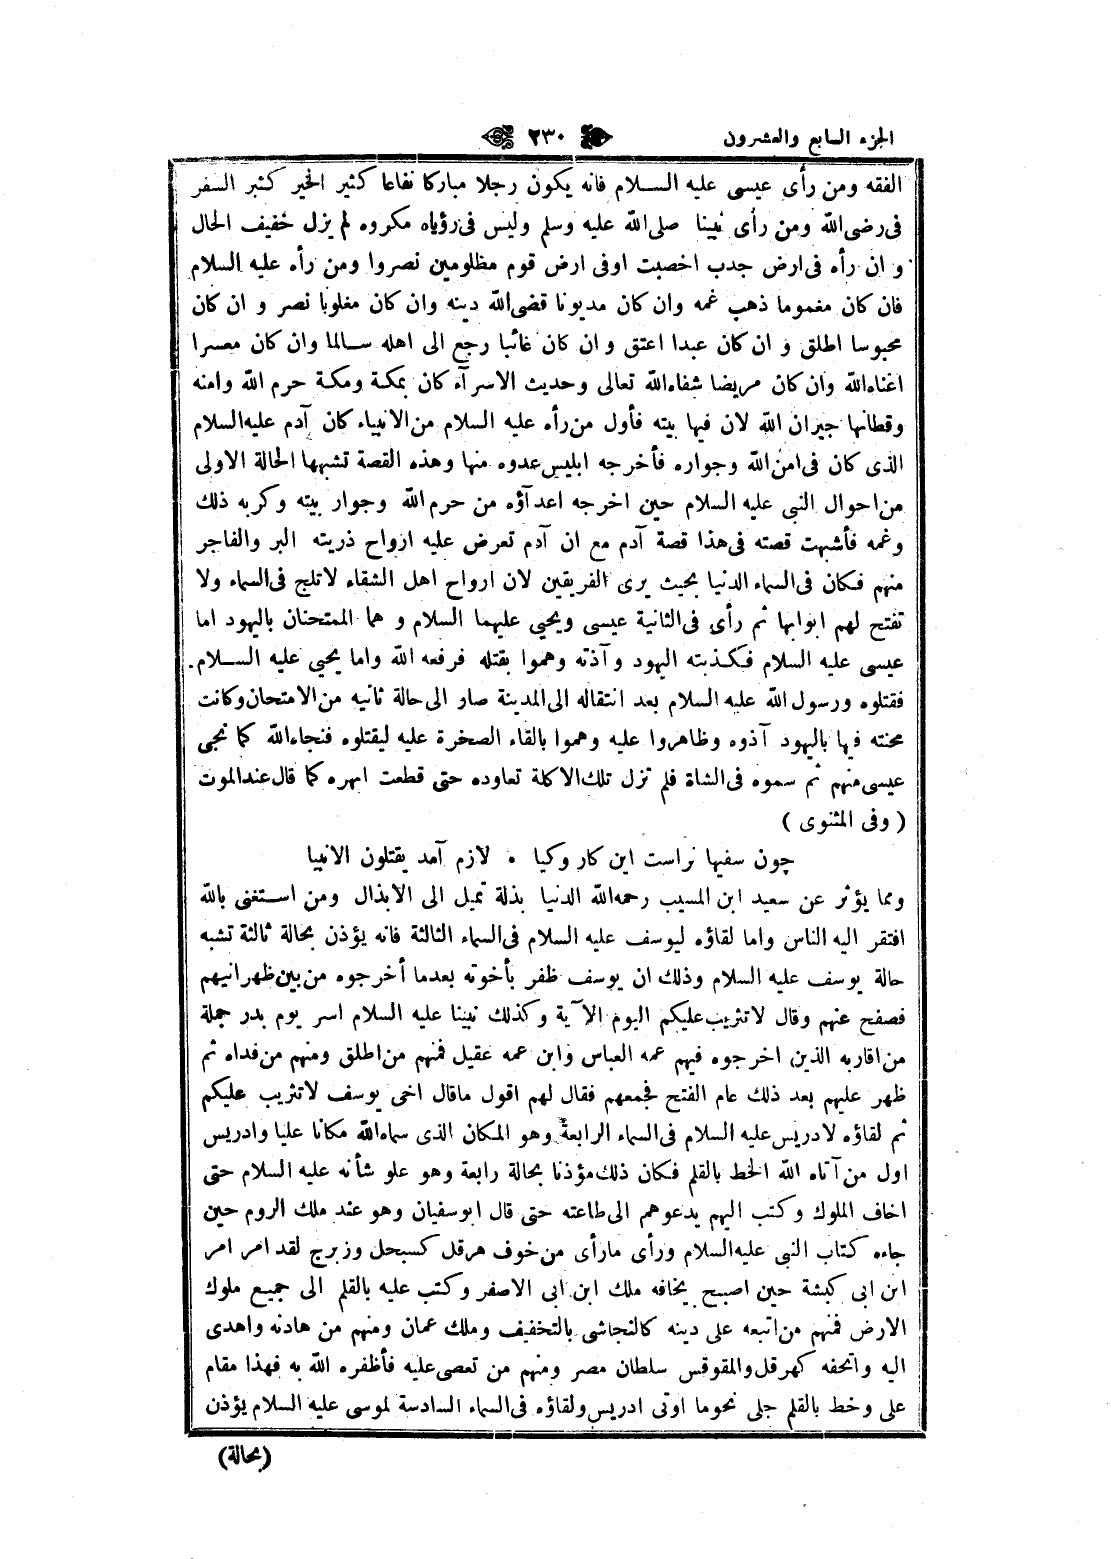 الجزء السابع والعشرون
٢٣٠
الفقه ومن رأى عيسى عليه السلام فانه يكون رجلا مباركا نفاعا كثير الخير كثير السفر
فى رضى الله ومن رأى نبينا صلى الله عليه وسلم وليس فى رؤياه مكروه لم يزل خفيف الحال
و ان رأه فى ارض جدب اخصبت او فى ارض قوم مظلومين نصروا ومن رأه عليه السلام
فان كان مغموما ذهب غمه وان كان مديونا قضى الله دينه وان كان مغلوبا نصر و ان كان
محبوسا اطلق و ان كان عبدا اعتق و ان كان غائبا رجع الى اهله سالما وان كان معسرا
اغناه الله وان كان مريضا شفاه الله تعالى وحديث الاسرآء كان بمكة ومكة حرم الله وامنه
وقطانها جيران الله لان فيها بيته فأول من رأه عليه السلام من الانبياء كان آدم عليه السلام
الذى كان فى امن الله وجواره فأخرجه ابليس عدوه منها وهذه القصة تشبهها الحالة الاولى
من احوال النبى عليه السلام حين اخرجه اعدآؤه من حرم الله وجوار بيته وكربه ذلك
وغمه فأشبهت قصته فى هذا قصة آدم مع ان آدم تعرض عليه ارواح ذريته البر والفاجر
منهم فكان فى السماء الدنيا بحيث يرى الفريقين لان ارواح اهل الشقاء لاتلج فى السماء ولا
تفتح لهم ابوابها ثم رأى فى الثانية عيسى ويحيى عليهما السلام و هما الممتحنان باليهود اما
عيسى عليه السلام فكذبته اليهود وآذته وهموا بقتله فرفعه الله واما يحيى عليه السلام
فقتلوه ورسول الله عليه السلام بعد انتقاله الى المدينة صار الى حالة ثانيه من الامتحان وكانت
محنته فيها باليهود آذوه وظاهروا عليه وهموا بالقاء الصخرة عليه ليقتلوه فنجاه الله كما نجى
عيسى منهم ثم سموه فى الشاة فلم تزل تلك الاكلة تعاوده حتى قطعت ابهره كما قال عند الموت
( وفى المثنوى )
چون سفيها نراست اين كار وكيا ۰ لازم آمد يقتلون الانبيا
ومما يؤثر عن سعيد ابن المسيب رحمه الله الدنيا بذلة تميل الى الابذال ومن استغنى بالله
افتقر اليه الناس واما لقاؤه ليوسف عليه السلام فى السماء الثالثة فانه يؤذن بحالة ثالثة تشبه
حالة يوسف عليه السلام وذلك ان يوسف ظفر بأخوته بعدما أخرجوه من بين ظهرانيهم
فصفح عنهم وقال لاتثريب عليكم اليوم الآية وكذلك نبينا عليه السلام اسر يوم بدر جملة
من اقاربه الذين اخرجوه فيهم عمه العباس وابن عمه عقيل فمنهم من اطلق ومنهم من فداه ثم
ظهر عليهم بعد ذلك عام الفتح فجمعهم فقال لهم اقول ماقال اخى يوسف لاتثريب عليكم
ثم لقاؤه لادريس عليه السلام فى السماء الرابعة وهو المكان الذى سماه الله مكانا عليا وادريس
اول من آتاه الله الخط بالقلم فكان ذلك مؤذنا بحالة رابعة وهو علو شأنه عليه السلام حتى
اخاف الملوك وكتب اليهم يدعوهم الى طاعته حتى قال ابوسفيان وهو عند ملك الروم حين
جاءه كتاب النبى عليه السلام ورأى مارأى من خوف هرقل كسبحل وزبرج لقد امر امر
ابن ابى كبشة حين اصبح يخافه ملك ابن ابى الاصفر وكتب عليه بالقلم الى جميع ملوك
الارض فمنهم من اتبعه على دينه كالنجاشى بالتخفيف وملك عمان ومنهم من هادنه واهدى
اليه واتحفه كهرقل والمقوقس سلطان مصر ومنهم من تعصى عليه فأظفره الله به فهذا مقام
على وخط بالقلم جلى نحوما اوتى ادريس ولقاؤه فى السماء السادسة لموسى عليه السلام يؤذن
(بحالة)